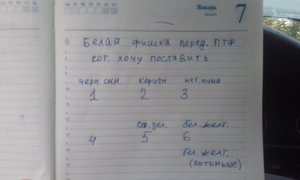 Январь
7
Белая фишка перед. ПТФ
кот. хочу поставить
черн. син. коричн. нет пина
1 2 3
сер. зел. бел. желт.
4 5 6
бел. желт.
(потоньше)